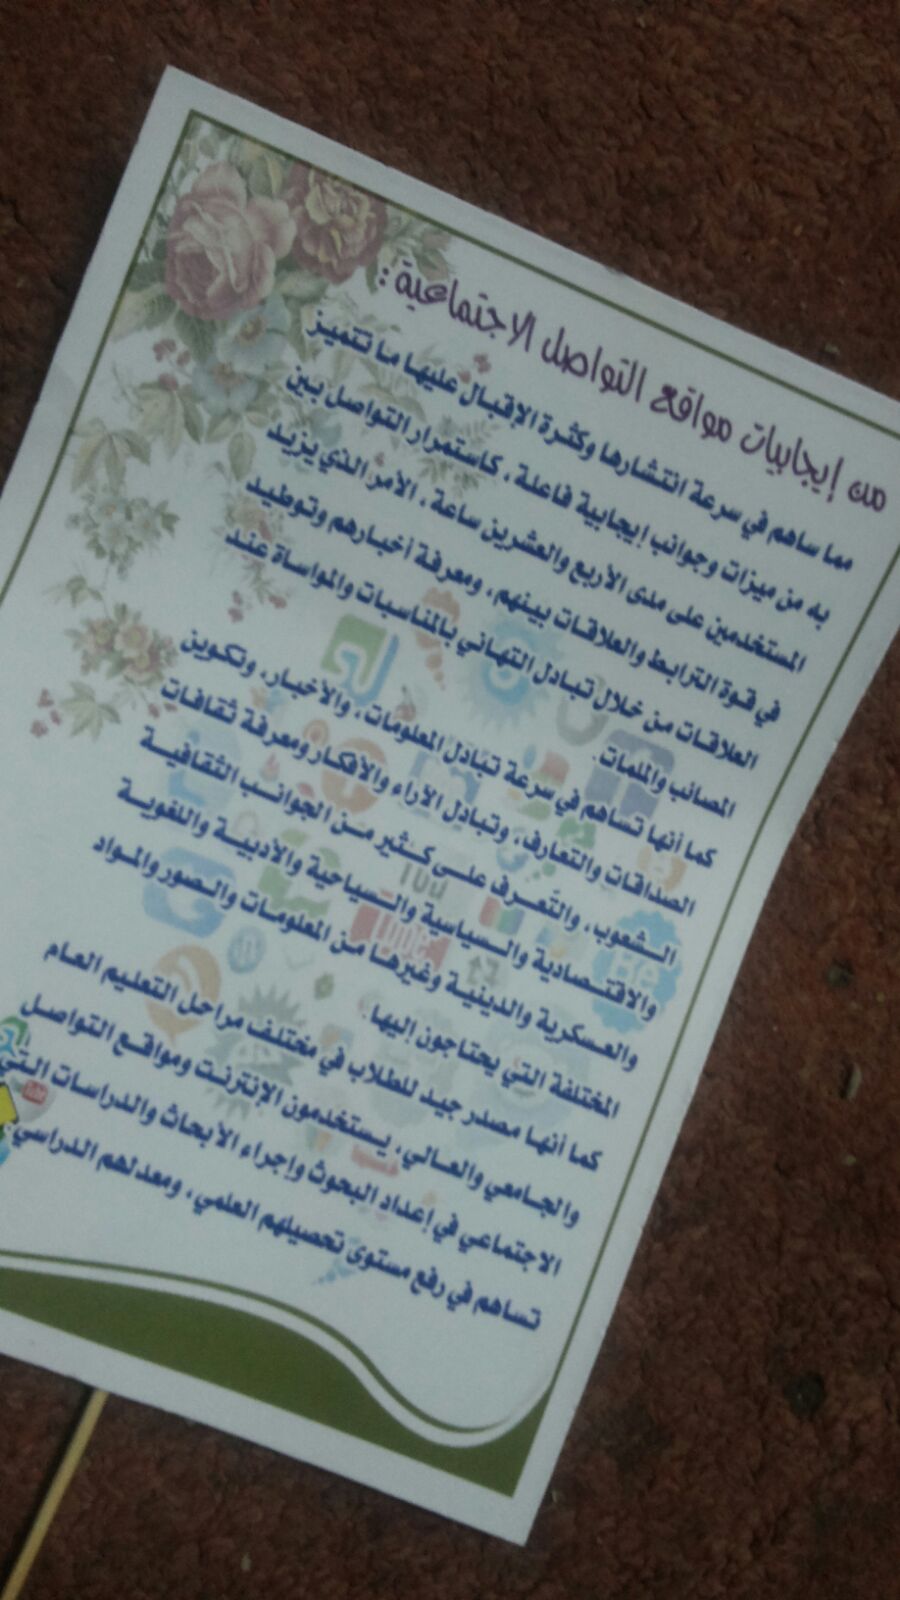 من إيجابيات مواقع التواصل الاجتماعية :
مما ساهم في سرعة انتشارها وكثرة الإقبال عليها ما تتميز
به من ميزات وجوانب إيجابية فاعلة، كاستمرار التواصل بين
المستخدمين على مدى الأربع والعشرين ساعة، الأمر الذي يزيد
في قوة الترابط والعلاقات بينهم، ومعرفة أخبارهم وتوطيد
العلاقات من خلال تبادل التهاني بالمناسبات والمواساة عند
المصائب والملمات.
كما أنها تساهم في سرعة تبادل المعلومات، والأخبار، وتكوين
الصداقات والتعارف، وتبادل الآراء والأفكار ومعرفة ثقافات
الشعوب، والتعرف على كثير من الجوانب الثقافية
والاقتصادية والسياسية والسياحية والأدبية واللغوية
والعسكرية والدينية وغيرها من المعلومات والصور والمواد
المختلفة التي يحتاجون إليها.
كما أنها مصدر جيد للطلاب في مختلف مراحل التعليم العام
والجامعي والعالي، يستخدمون الإنترنت ومواقع التواصل
الاجتماعي في إعداد البحوث وإجراء الأبحاث والدراسات التي
تساهم في رفع مستوى تحصيلهم العلمي، ومعدلهم الدراسي.
You
Tube
Be